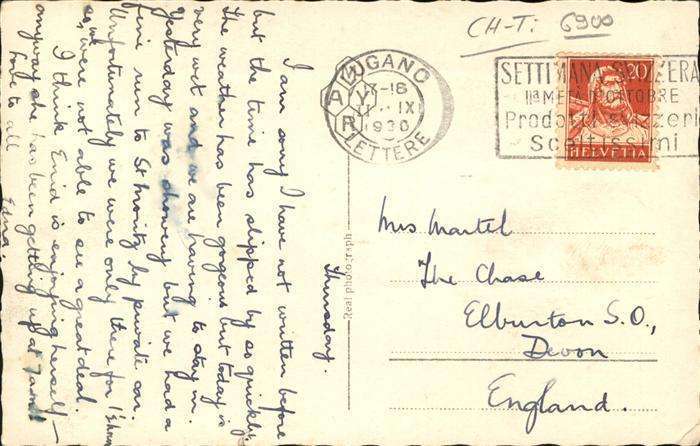 CH-T: 6900
LUGANO
IX-16
IX
1930
LETTERE
SETTIMANA SVIZZERA
IIª METÀ D'OTTOBRE
Prodotti svizzeri
Sceltissimi
20
HELVETIA
Real photograph
Thursday.
I am sorry I have not written before
but the time has slipped by so quickly
The weather has been gorgeous but today is
very wet and we are having to stay in.
Yesterday was showery but we had a
fine run to St Moritz by private car.
Unfortunately we were only there for 1½ hrs
so we were not able to see a great deal.
I think Enid is enjoying herself —
anyway she has been getting up at 7am!!
love to all
Edna.
Mrs Martel
The Chase
Elburton S.O.,
Devon
England.